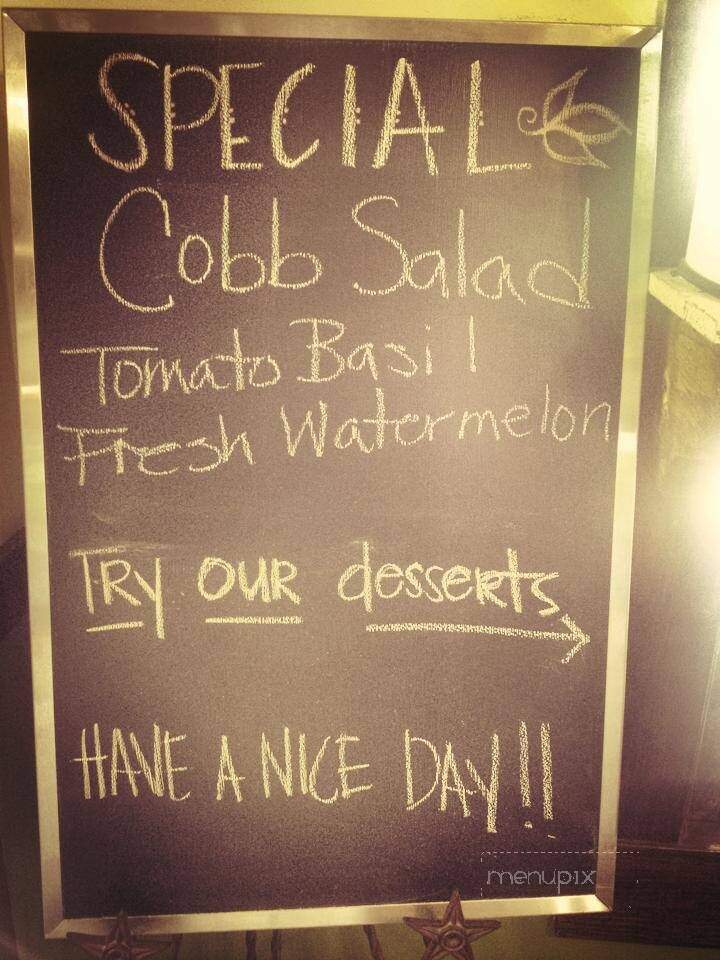 SPECIAL
Cobb Salad
Tomato Basil
Fresh Watermelon
TRY OUR desserts
HAVE A NICE DAY!!
menupix